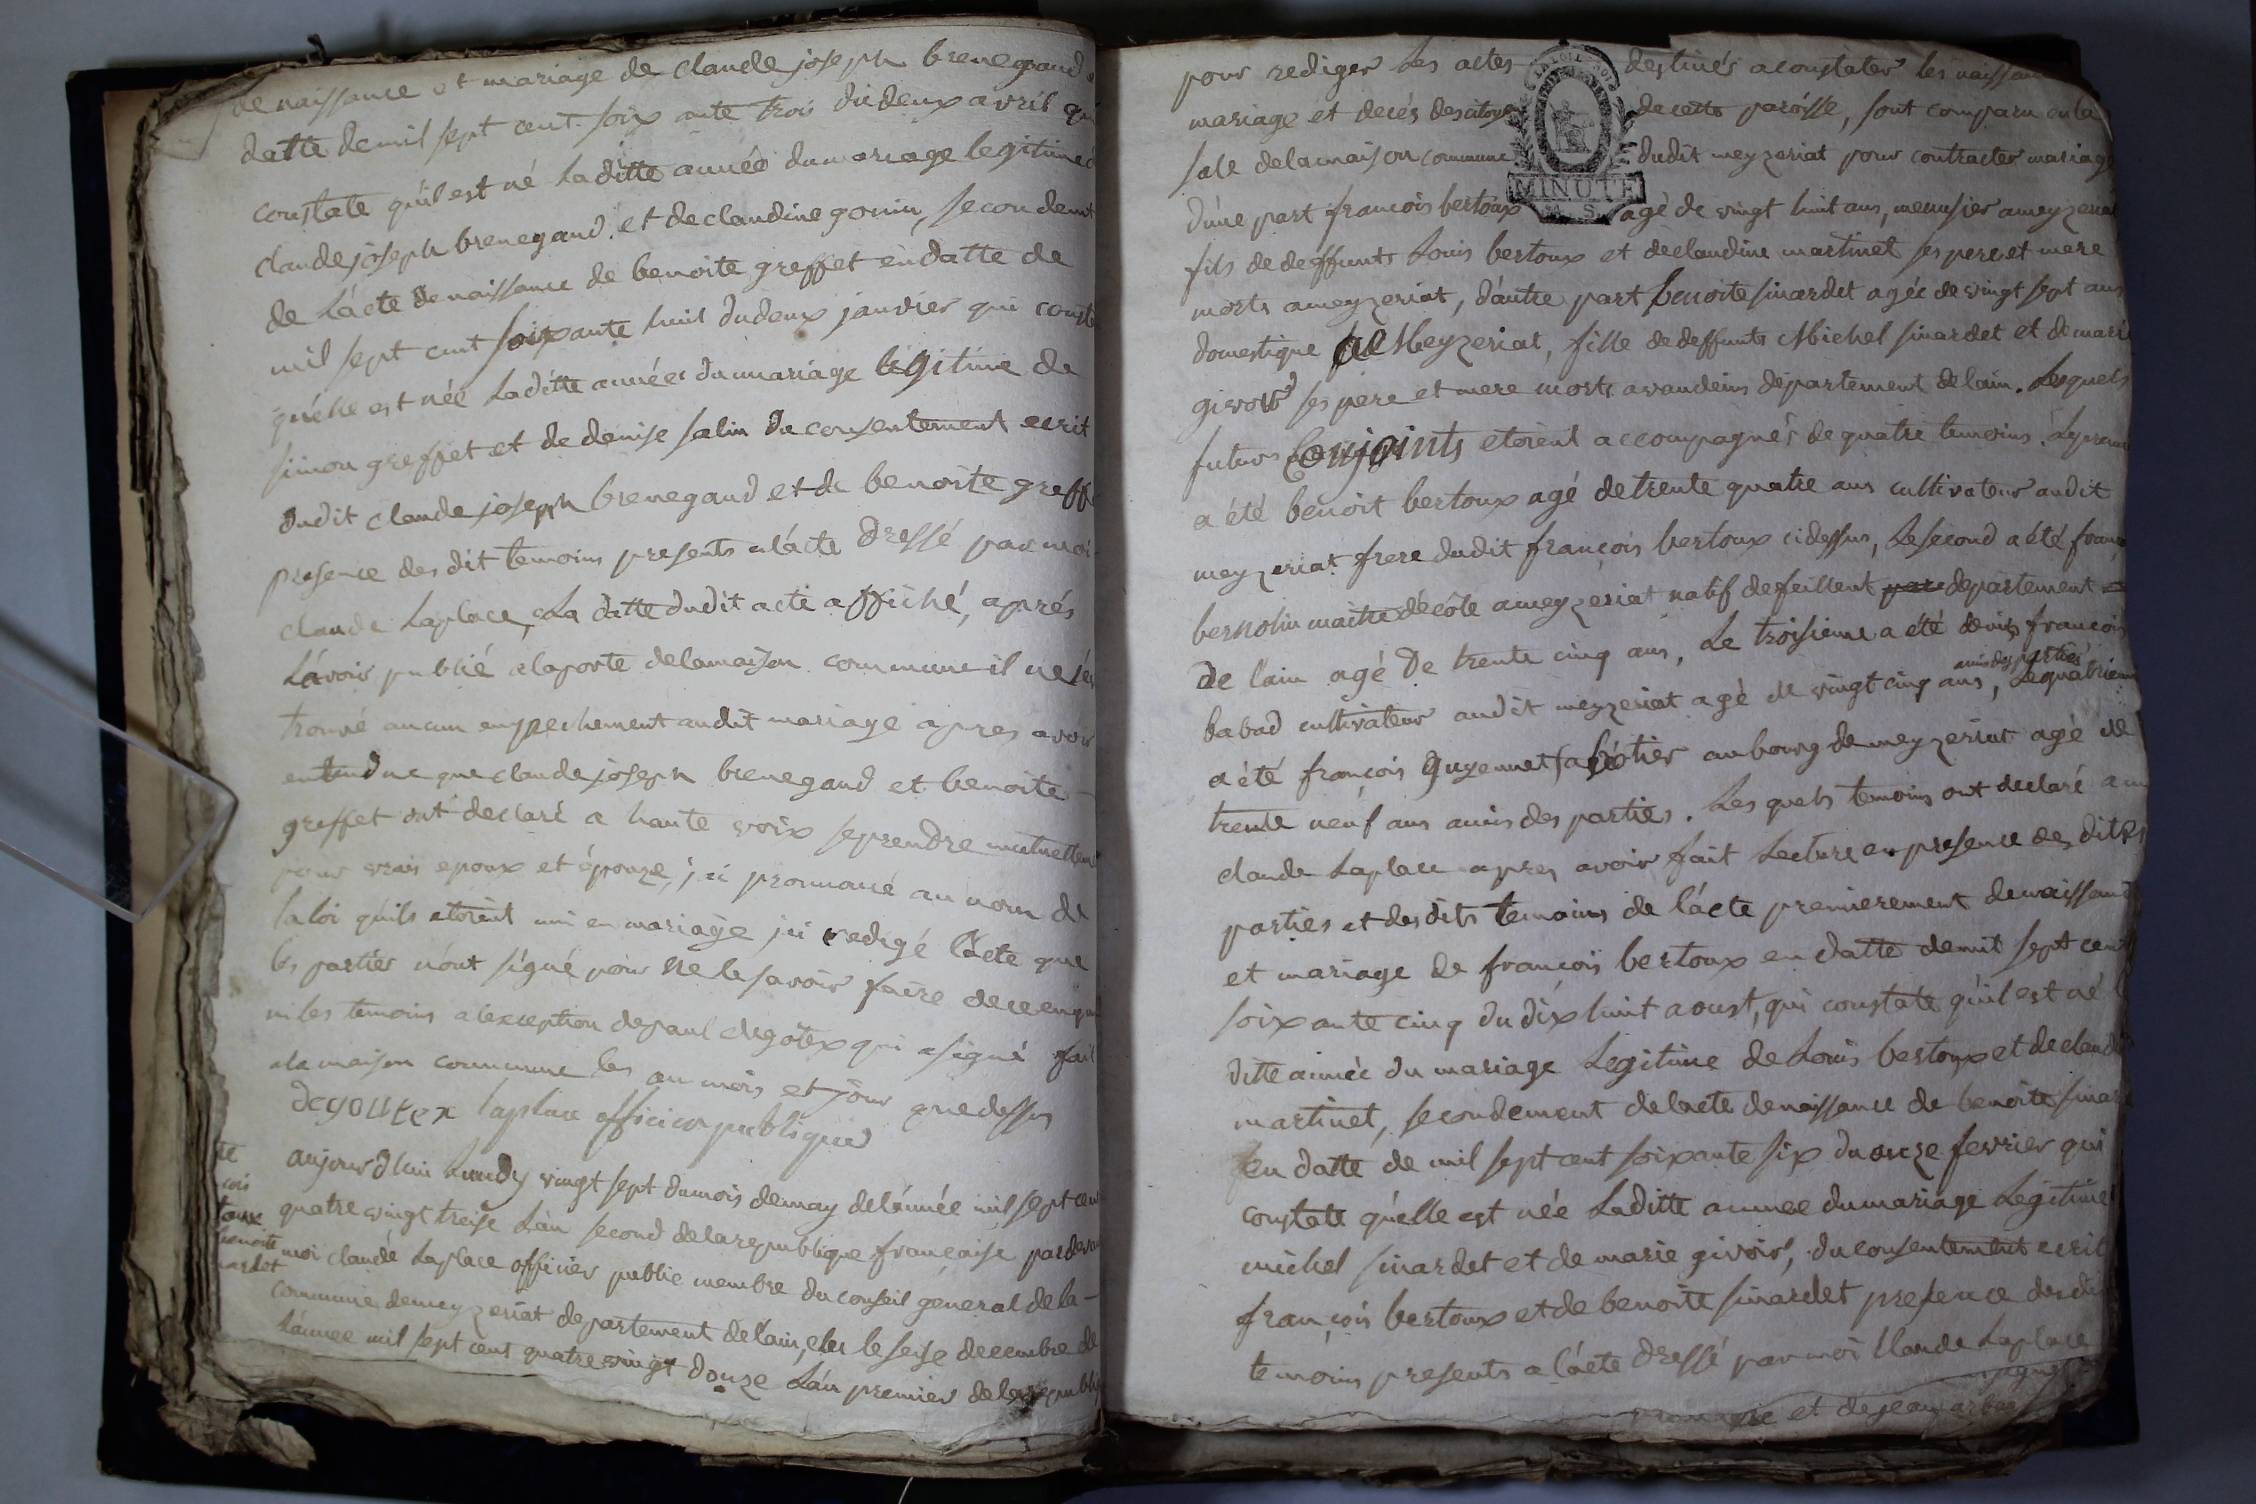 de naissance et mariage de claude joseph brenegaud
datte de mil sept cent soix ante trois du deux avril qui
constate qu'il est né laditte année du mariage legitime
claude joseph brenegaud et de claudine gonin, secondemt
de l'ácte de naissance de benoite greffet en datte de
mil sept cent soixante huit du deux janvier qui
qu'elle est née laditte année du mariage légitime de
simon greffet et de denise salin du consentement ecrit
dudit claude joseph brenegaud et de benoite greff
presence des dit temoins presents a l'ácte dressé par moi
claude Laplace, La datte dudit acte affiché, aprés
l'ávoir publié a la porte de la maison commune il ne
trouvé aucun enpechement audit mariage apres avoir
entendue que claude joseph brenegaud et benoite
greffet ont declaré a haute voix se prendre mutuellem
pour vrais epoux et épouze, j'ai prononcé au nom de
la loi qu'ils etoient uni en mariage j'ai redigé l'ácte que
les parties n'ont signé pour ne le savoir faire de ce enqui
ni les temoins a l'exception de paul degotex qui a signé fait
a la maison commune les an mois et jour que dessus
degoutex laplace officier publique
aujourd'hui Lundy vingt sept du mois de may de l'ánnée mil sept cen
quatre vingt treise L'an second de la republique françaiſe pardevan
moi claude Laplace officier public membre du conseil géneral de la
commune de meyzeriat departement de l'ain, elu le seise decembre de
L'ánnee mil sept cent quatre vingt douze L'án premier de la republi
toux
benoite
pour rediger les actes destinés a constater les naissan
mariage et decés des citoyen de cette paroisse, sont comparu en la
sale de la maison commune dudit meyzeriat pour contracter mariage
LA LOI
MINUTE
d'une part françois bertoux agé de vingt huit ans, menusier a meyzeriat
fils de deffunts Louis bertoux et de claudine martinet ses pere et mere
morts a meyzeriat, d'áutre part benoite sinardet agée de vingt sept ans
domestique a Meyzeriat, fille de deffunts Michel sinardet et de marie
givois ses pere et mere morts a vandeins département de lain. Lesquels
futurs Conjoints etoient accompagnés de quatre temoins. Le premie
a été benoit bertoux agé de trente quatre ans cultivateur audit
meyzeriat frere dudit françois bertoux ci dessus, Le second a été franç
bernolin maitre décóle a meyzeriat natif de feillent departement
de l'ain agé de trente cinq ans, Le troisieme a été denis françois
babad cultivateur audit meyzeriat agé de vingt cinq ans, amis des parties Le quatrieme
a été françois guyennet sabotier au bourg de meyzeriat agé de
trente neuf ans amis des parties. Les quels temoins ont declaré a m
claude Laplace apres avoir fait Lecture en presence des dites
parties et des dits temoins de l'ácte premierement de naissance
et mariage de françois bertoux en datte de mil sept cent
soixante cinq du dix huit aoust, qui constate qu'il est né l
ditte année du mariage Legitime de Louis bertoux et de claudi
martinet, secondement de l'acte de naissance de benoite sinard
en datte de mil sept cent soixante six du onze fevrier qui
constate qu'elle est née Laditte année du mariage Legitime
michel sinardet et de marie givois, du consentement ecrit
françois bertoux et de benoite sinardet presence des dit
temoins presents a l'ácte dressé par moi Claude Laplace
et de jean